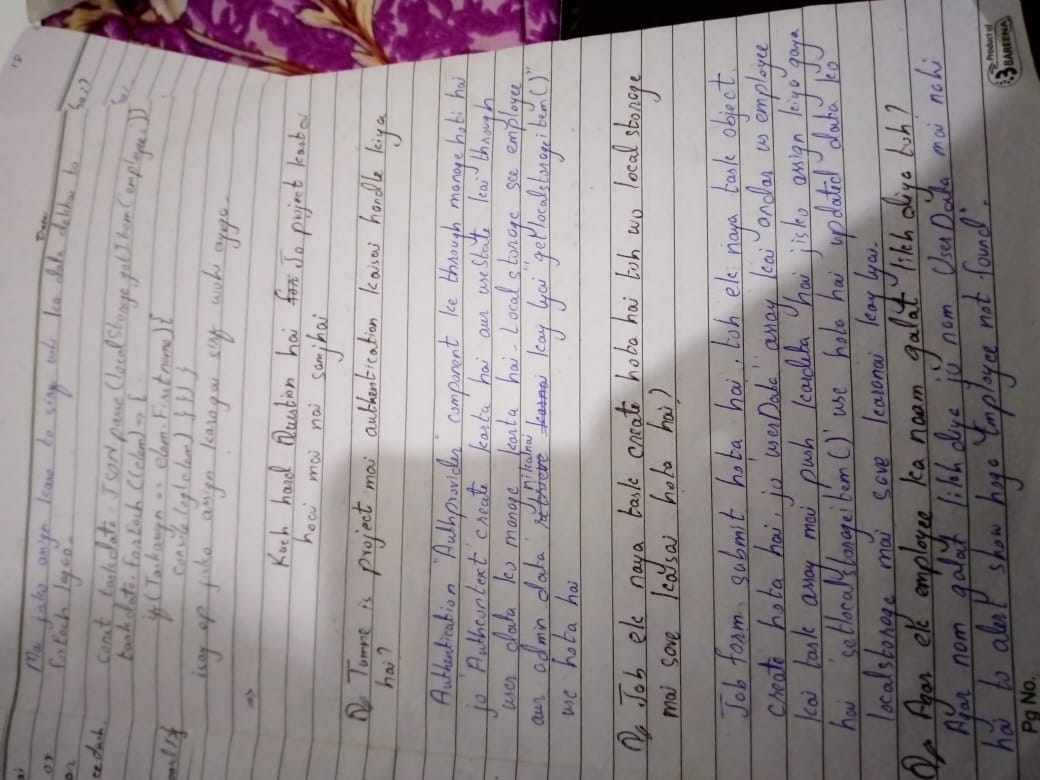 18
Date
Mai jako asign karo to sirf wohi ka data dekhao to
forEach lagao.
const taskdata = JSON.parse(localStorage.getItem('employee'))
taskdata.forEach((elem) => {
if(Taskasign == elem.Firstname){
console.log(elem) } }) }
isay ap jako asign karogai sirf wohi ayega.
=>
Kuch hard Question hai for Jo project karta
howi mai nai samjhai
Q, Tumne is project mai authentication kaisai handle kiya
hai?
Authentication "Authprovider" component ke through manage hoti hai
jo 'Authcontext' create karta hai aur useState kai through
user data ko manage karta hai. Local storage see employee
nikalnai
aur admin data retrieve karnai kay lyai "getlocalstorageitem()"
use hota hai
Q, Jab ek naya task create hota hai toh wo local storage
mai save kaisai hota hai?
Jab form submit hota hai, toh ek naya task object
create hota hai, jo 'userData' array kai andar us employee
kai task array mai push kardeta hai jisko assign kiya gaya
hai 'setlocalstorageitem()' use hota hai updated data ko
localstorage mai save karanai kay lyai.
Q, Agar ek employee ka naam galat likh diya toh?
Agar nam galat likh diya jo nam UserData mai nahi
hai to alert show hoga "Employee not found".
Pg No.
Product of
BAREENA